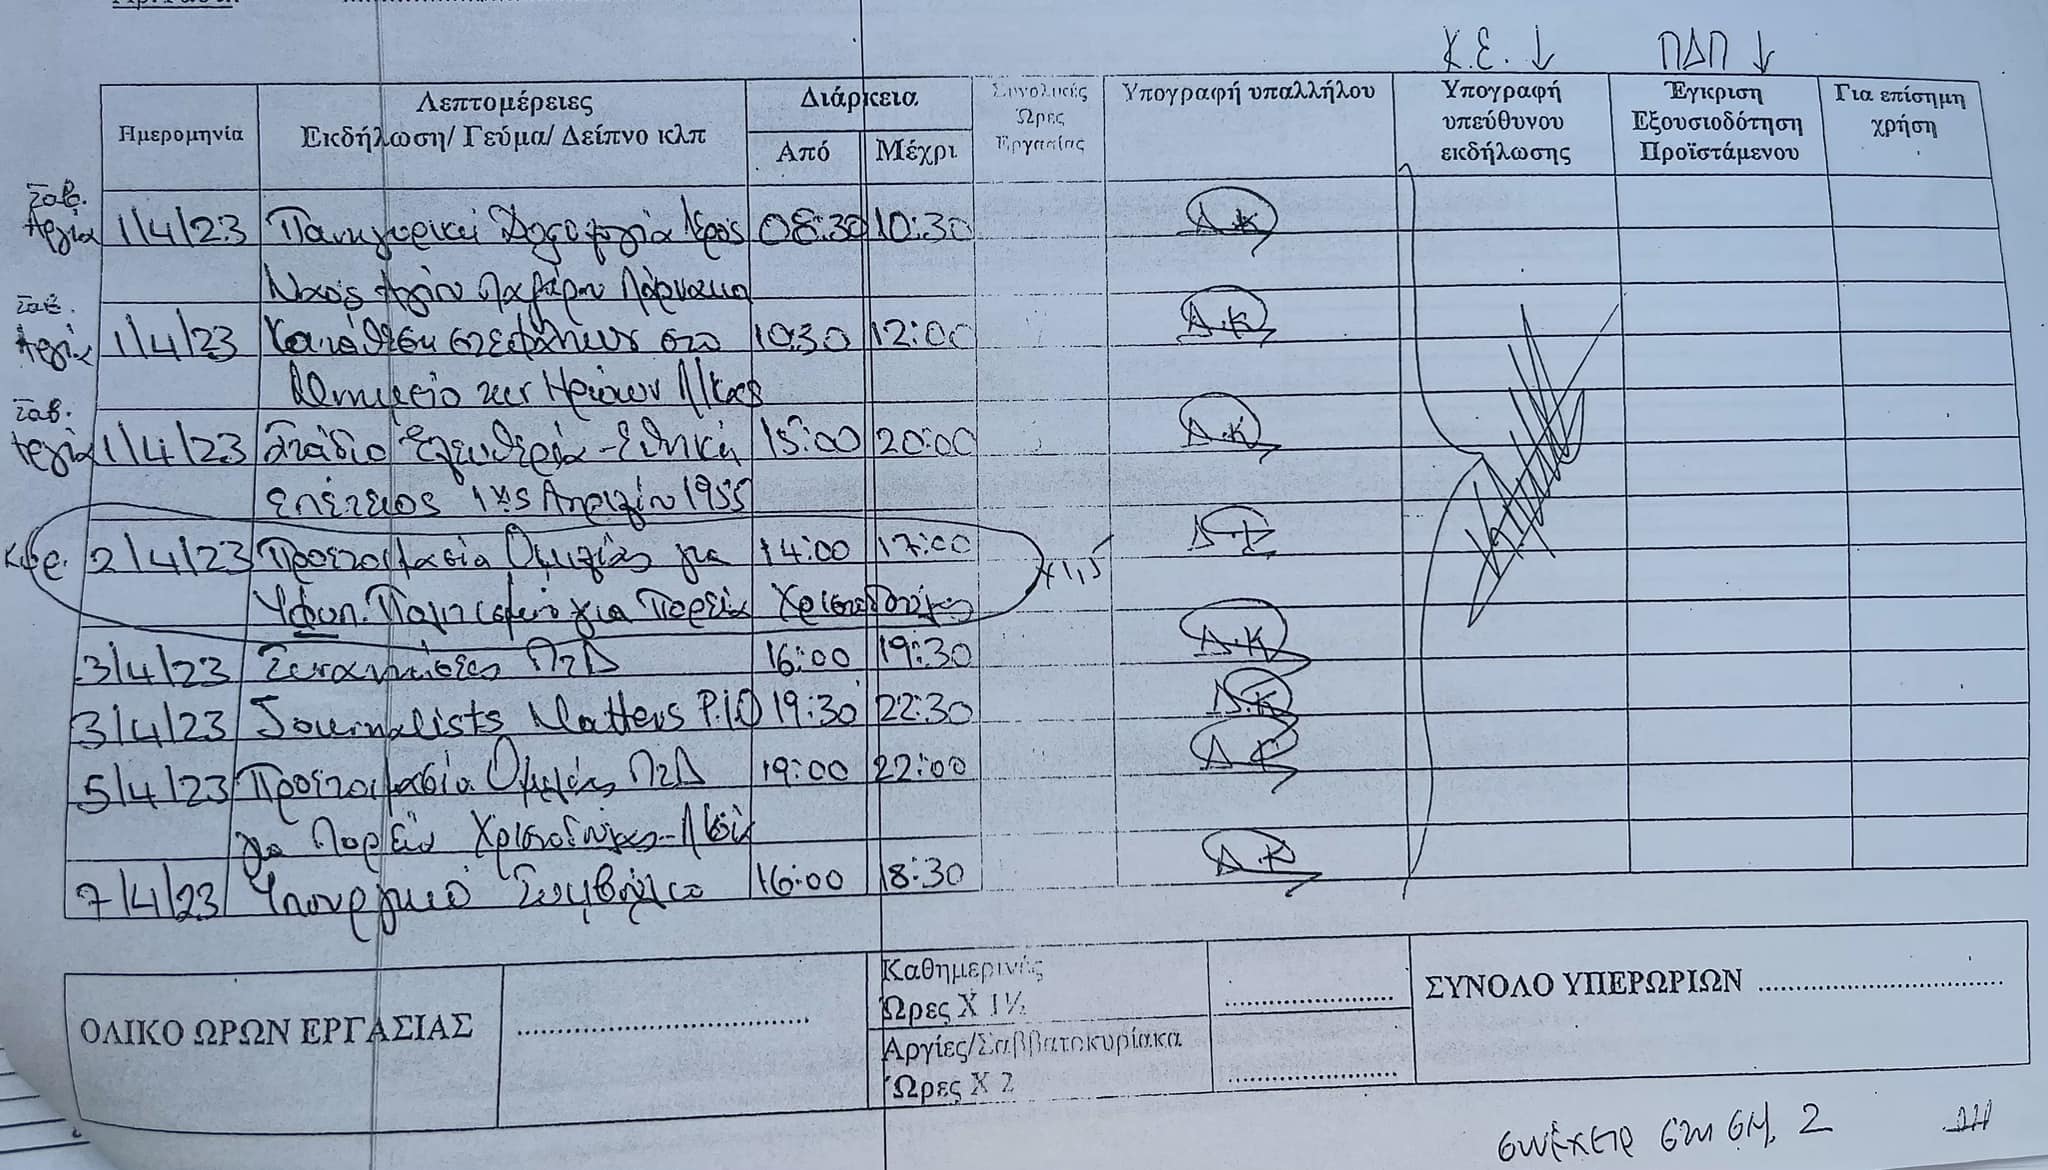 Κ.Ε. ↓ ΠΔΠ ↓
Ημερομηνία
Λεπτομέρειες
Εκδήλωση/ Γεύμα/ Δείπνο κλπ
Διάρκεια
Από
Μέχρι
Συνολικές
Ώρες
Εργασίας
Υπογραφή υπαλλήλου
Υπογραφή
υπεύθυνου
εκδήλωσης
Έγκριση
Εξουσιοδότηση
Προϊστάμενου
Για επίσημη
χρήση
Σαβ.
Αργία 1/4/23 Πανηγυρική Δοξολογία Ιερός 08:30 10:30 Α.Κ
Ναός Αγίου Λαζάρου Λάρνακα
Σαβ.
Αργία 1/4/23 Κατάθεση στεφάνων στο 10:30 12:00 Α.Κ
Μνημείο των Ηρώων Λ/κας
Σαβ.
Αργία 1/4/23 Στάδιο Ελευθερία - Εθνική 15:00 20:00 Α.Κ
Επέτειος 1ης Απριλίου 1955
Κυρ. 2/4/23 Προετοιμασία Ομιλίας για 14:00 17:00 x 1,5
Υφυπ. Πολιτισμού για Πορεία Χριστοδούλας
3/4/23 Συναντήσεις ΠτΔ 16:00 19:30 Α.Κ
3/4/23 Journalists Matters P.I.O 19:30 22:30 Α.Κ
5/4/23 Προετοιμασία Ομιλίας ΠτΔ 19:00 22:00 Α.Κ
για Πορεία Χριστοδούλας
7/4/23 Υπουργικό Συμβούλιο 16:00 18:30 Α.Κ
ΟΛΙΚΟ ΩΡΩΝ ΕΡΓΑΣΙΑΣ ..............................
Καθημερινές
Ώρες Χ 1½ ..............................
Αργίες/Σαββατοκυρίακα
Ώρες Χ 2 ..............................
ΣΥΝΟΛΟ ΥΠΕΡΩΡΙΩΝ ..............................
συνέχεια στη σελ. 2